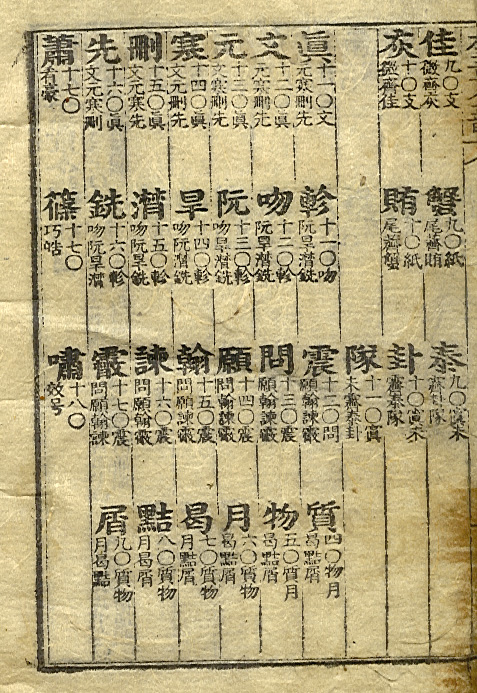 佳 九〇支 微齊灰
蟹 九〇紙 尾薺賄
泰 九〇寘未
灰 十〇支 微齊佳
賄 十〇紙 尾薺蟹
卦 十〇寘未 霽泰隊
隊 十一〇寘 未霽泰卦
眞 十一〇文 元寒刪先
軫 十一〇吻 阮旱潸銑
震 十二〇問 願翰諫霰
質 四〇物月 曷黠屑
文 十二〇眞 元寒刪先
吻 十二〇軫 阮旱潸銑
問 十三〇震 願翰諫霰
物 五〇質月 曷黠屑
元 十三〇眞 文寒刪先
阮 十三〇軫 吻旱潸銑
願 十四〇震 問翰諫霰
月 六〇質物 曷黠屑
寒 十四〇眞 文元刪先
旱 十四〇軫 吻阮潸銑
翰 十五〇震 問願諫霰
曷 七〇質物 月黠屑
刪 十五〇眞 文元寒先
潸 十五〇軫 吻阮旱銑
諫 十六〇震 問願翰霰
黠 八〇質物 月曷屑
先 十六〇眞 文元寒刪
銑 十六〇軫 吻阮旱潸
霰 十七〇震 問願翰諫
屑 九〇質物 月曷黠
蕭 十七〇 肴豪
篠 十七〇 巧皓
嘯 十八〇 效号